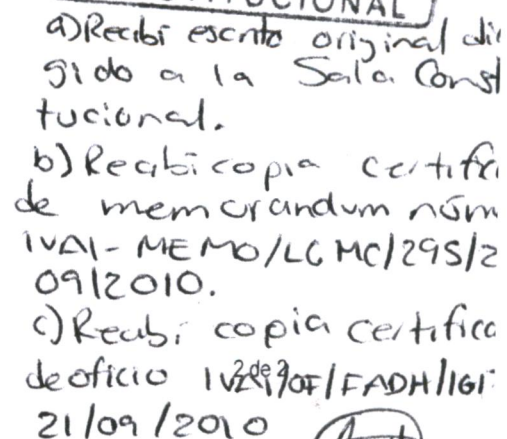 TUCIONAL
a) Recibí escrito original diri
gido a la Sala Const
tucional.
b) Recibi copia certifi
de memorandum núm
IVAI-MEMO/LCMC/295/2
09/2010.
c) Recibi copia certifica
de oficio IVAI/OF/FADH/161
2 de 2
21/09/2010